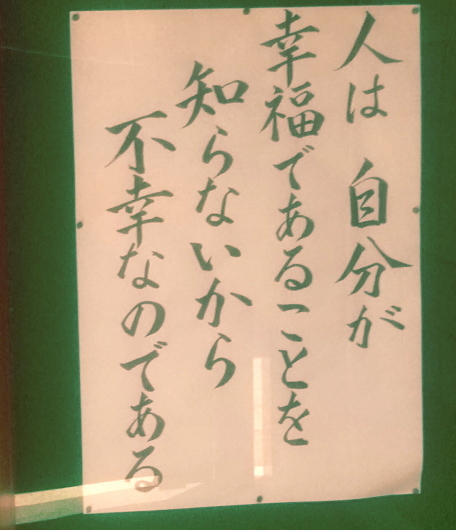 人は 自分が
幸福であることを
知らないから
不幸なのである